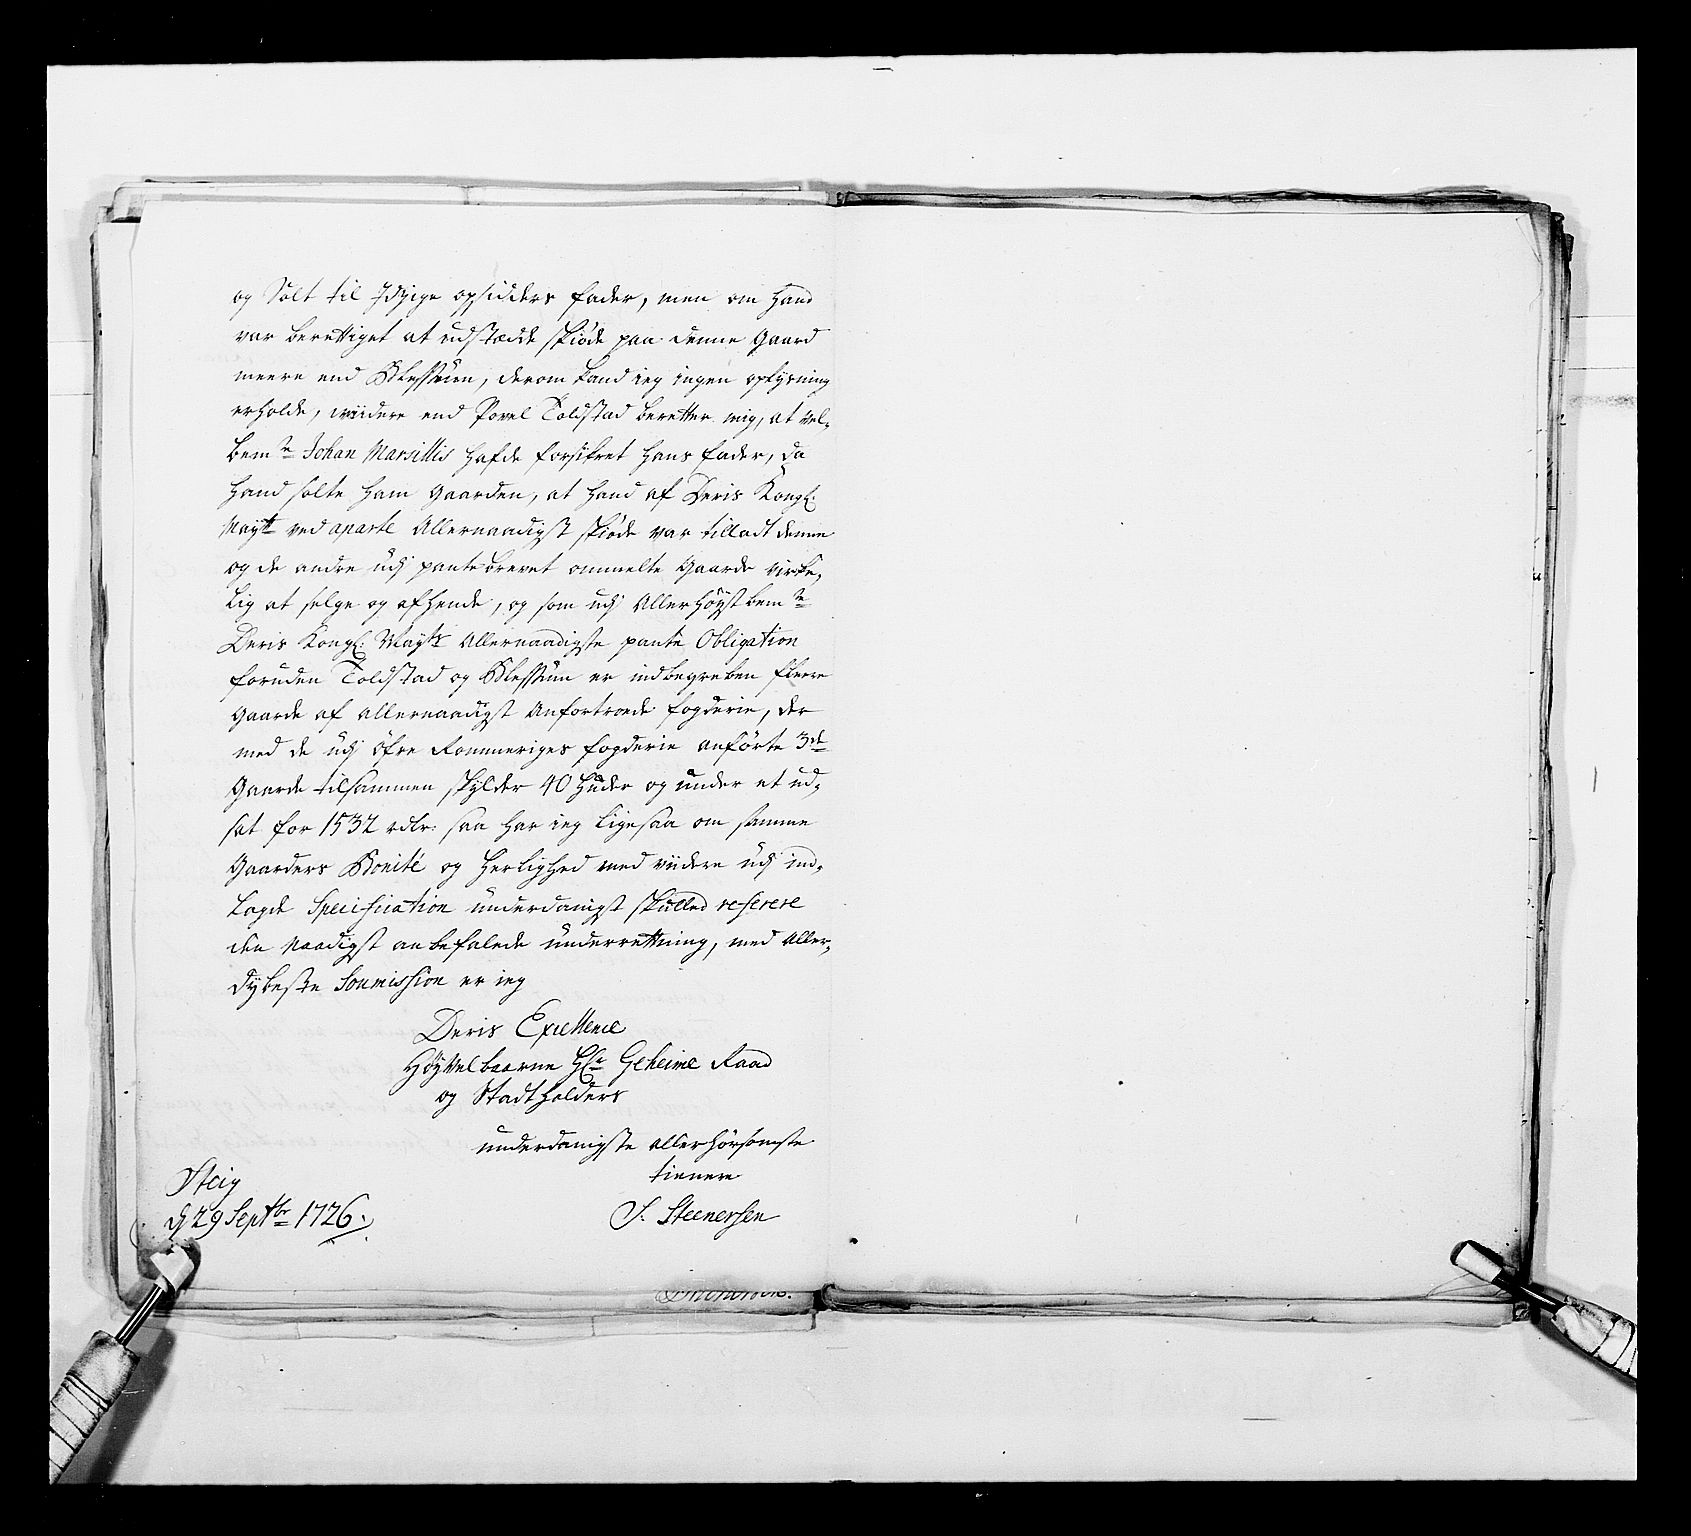 og Solt til Jdzige opsidders fader, men om hand
var berettiget at udstædde skiöde paa denne Gaard
meere end Blessum, derom kand ieg ingen oplysning
erholde, viidere end Povel Toldstad beretter mig, at Vel-
bem.te Johan Marsillis hafde forsikret hans fader, da
hand solte ham Gaarden, at hand af Deris Kongl:
Maytt ved aparte Allernaadigst skiöde var tilladt denne
og de andre udj pantebrevet ommelte Gaarde virke-
lig at selge og afhende, og som udj Allerhöyst bem.te
Deris Kongl: Mayts Allernaadigste pante Obligation
foruden Toldstad og Blessum er indbegreben fleere
Gaarde af allernaadigst Anfortroede fogderie, der
med de udj öfre Rommeriges fogderie anförte 3de
Gaarde tilsammen skylder 40 huder og under et ud-
sat for 1532 rdlr: saa har ieg ligesaa om samme
Gaarders Bonité og Herlighed med viidere udj ind-
lagde Specification underdanigst skulled referere
den Naadigst anbefalede underrettning, med Aller-
dybeste Soumission er ieg
Deris Excellence
HöyVelbaarne Hr Geheime Raad
og Stadtholders
underdanigste allerhörsomste
tienere
Steig
d 29 Septbr 1726.
S. Steenersen